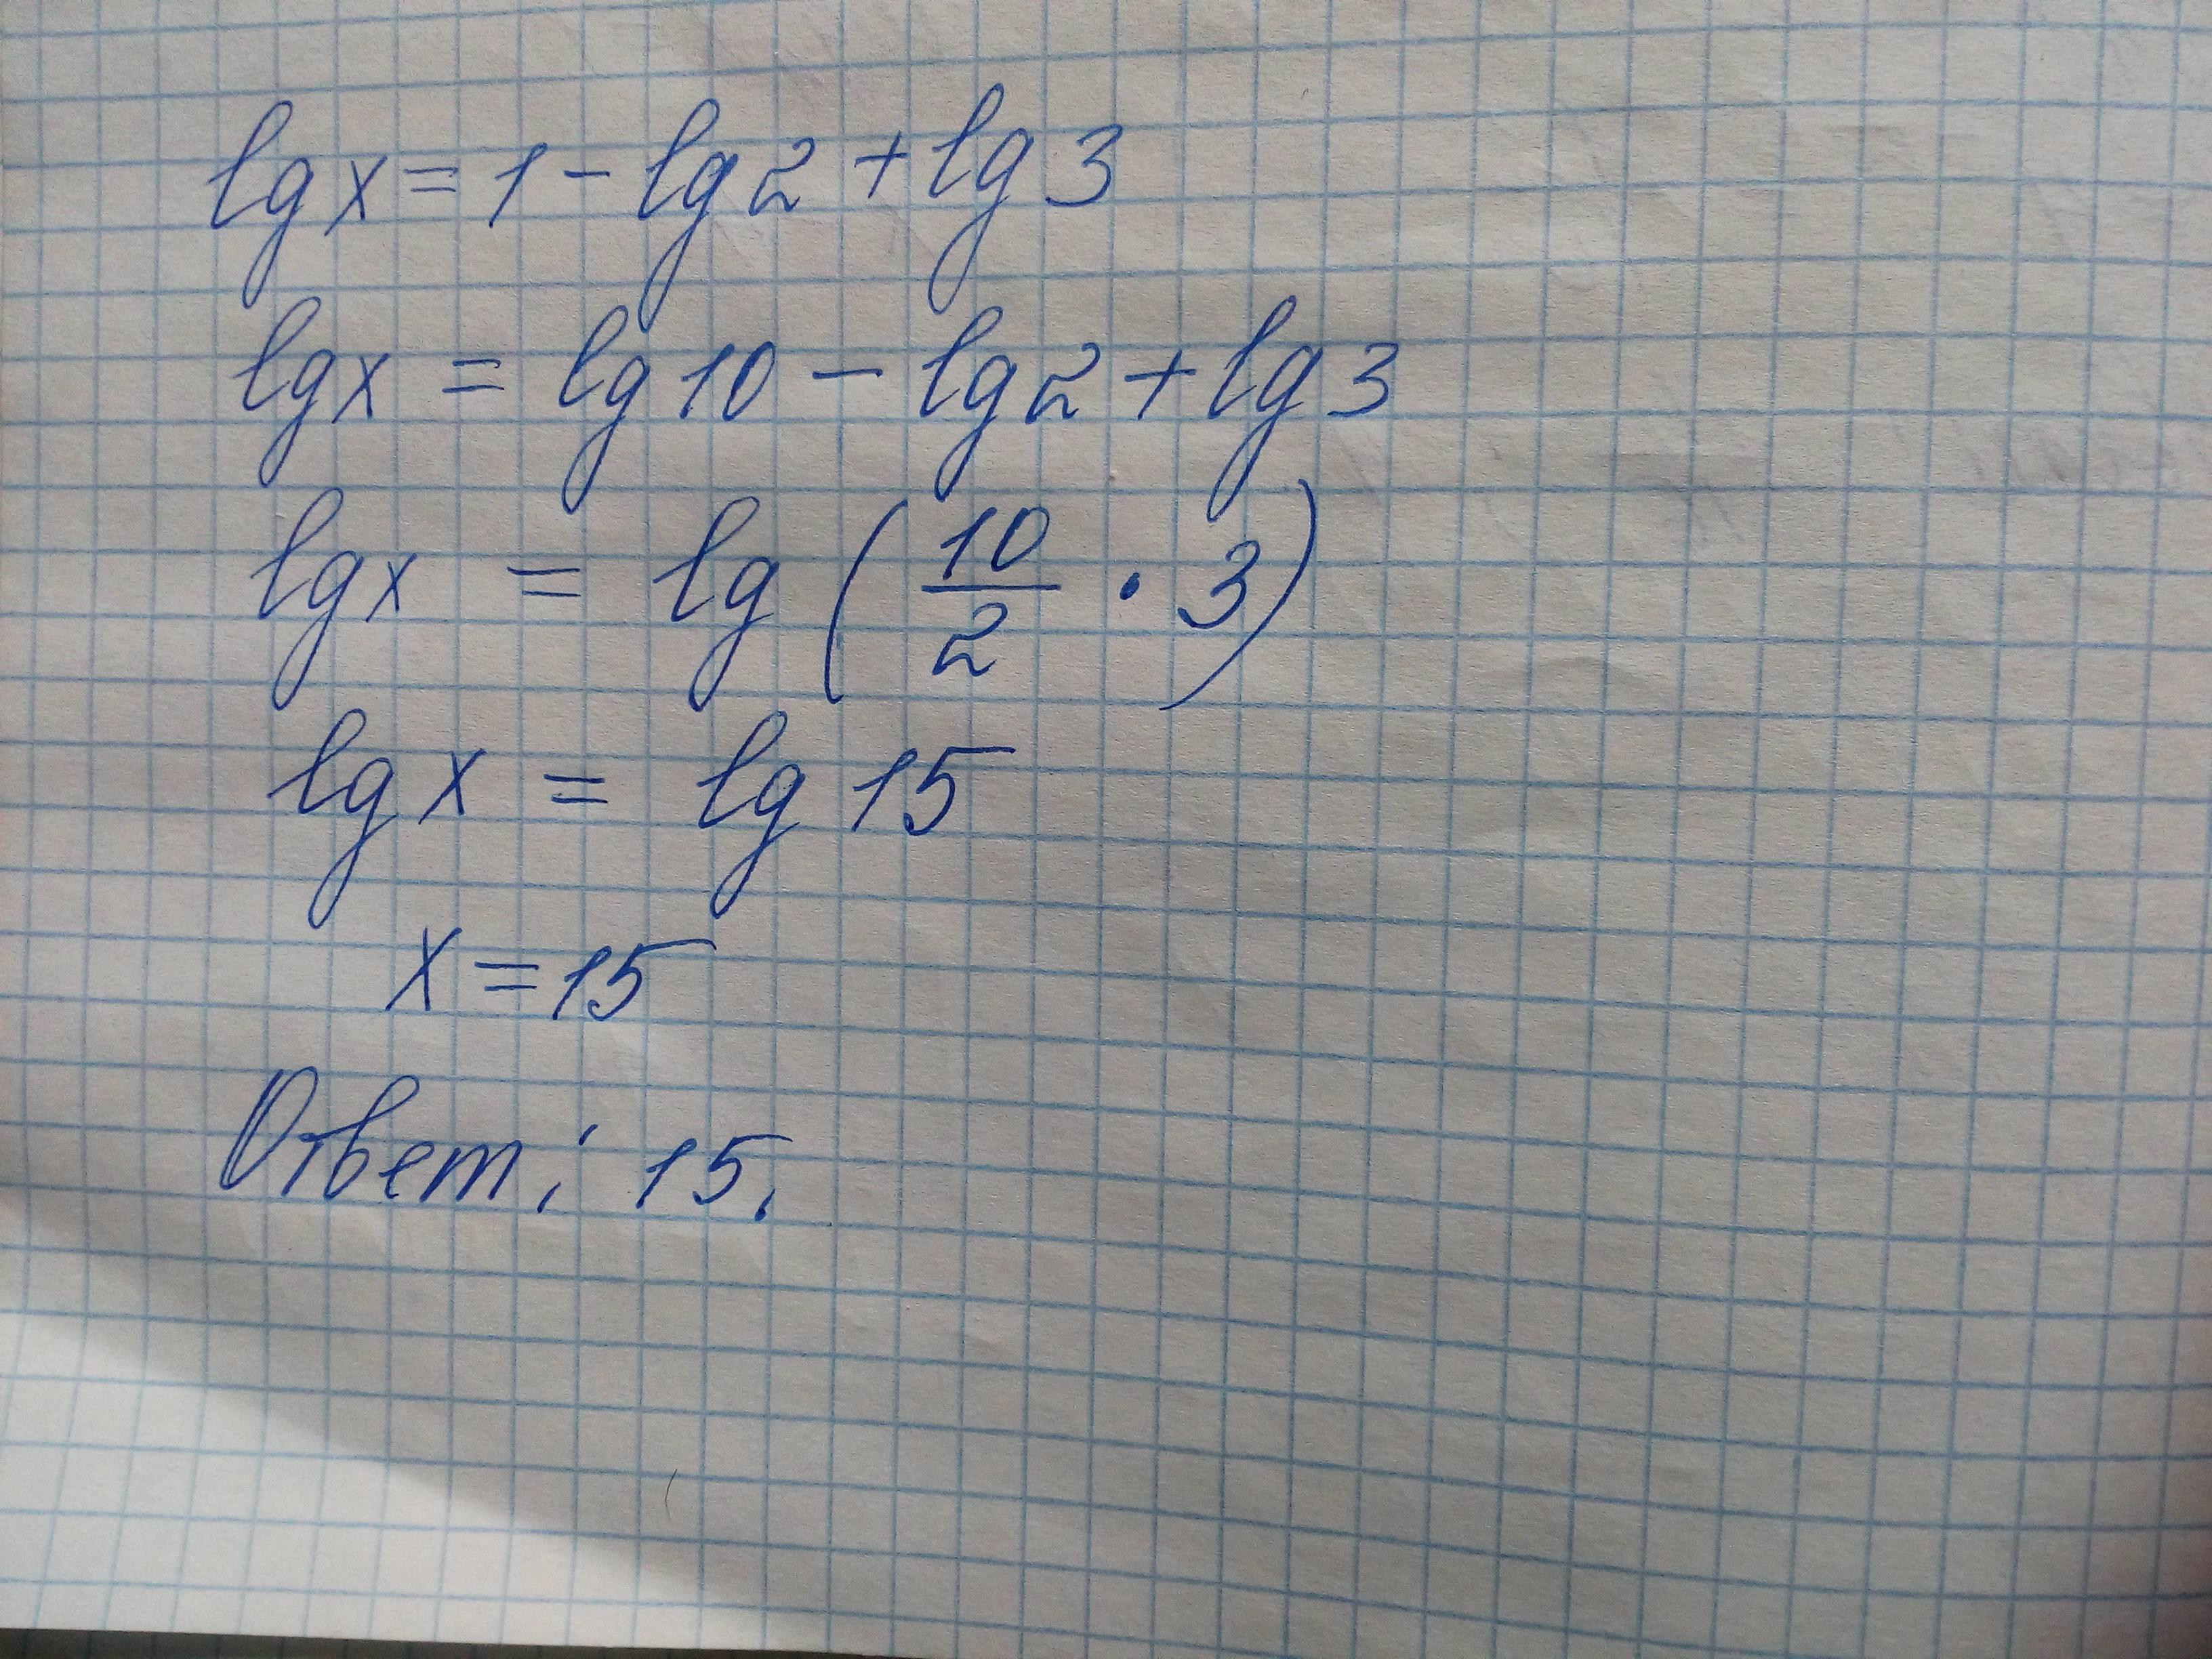 lg x = 1 - lg 2 + lg 3
lg x = lg 10 - lg 2 + lg 3
lg x = lg (10/2 · 3)
lg x = lg 15
x = 15
Ответ: 15.